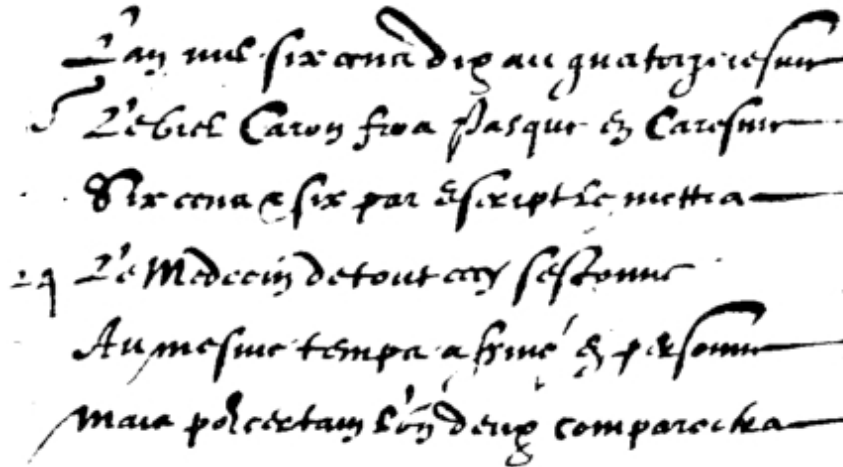 L'an mil six cens dix au quatorziesme
Le viel Caron fera Pasque en Caresme
Six cens & six par escript le mettra
Le Medecin de tout cecy sestonne
Au mesme temps assiné en personne
Mais por certain l'un deux comparoitra